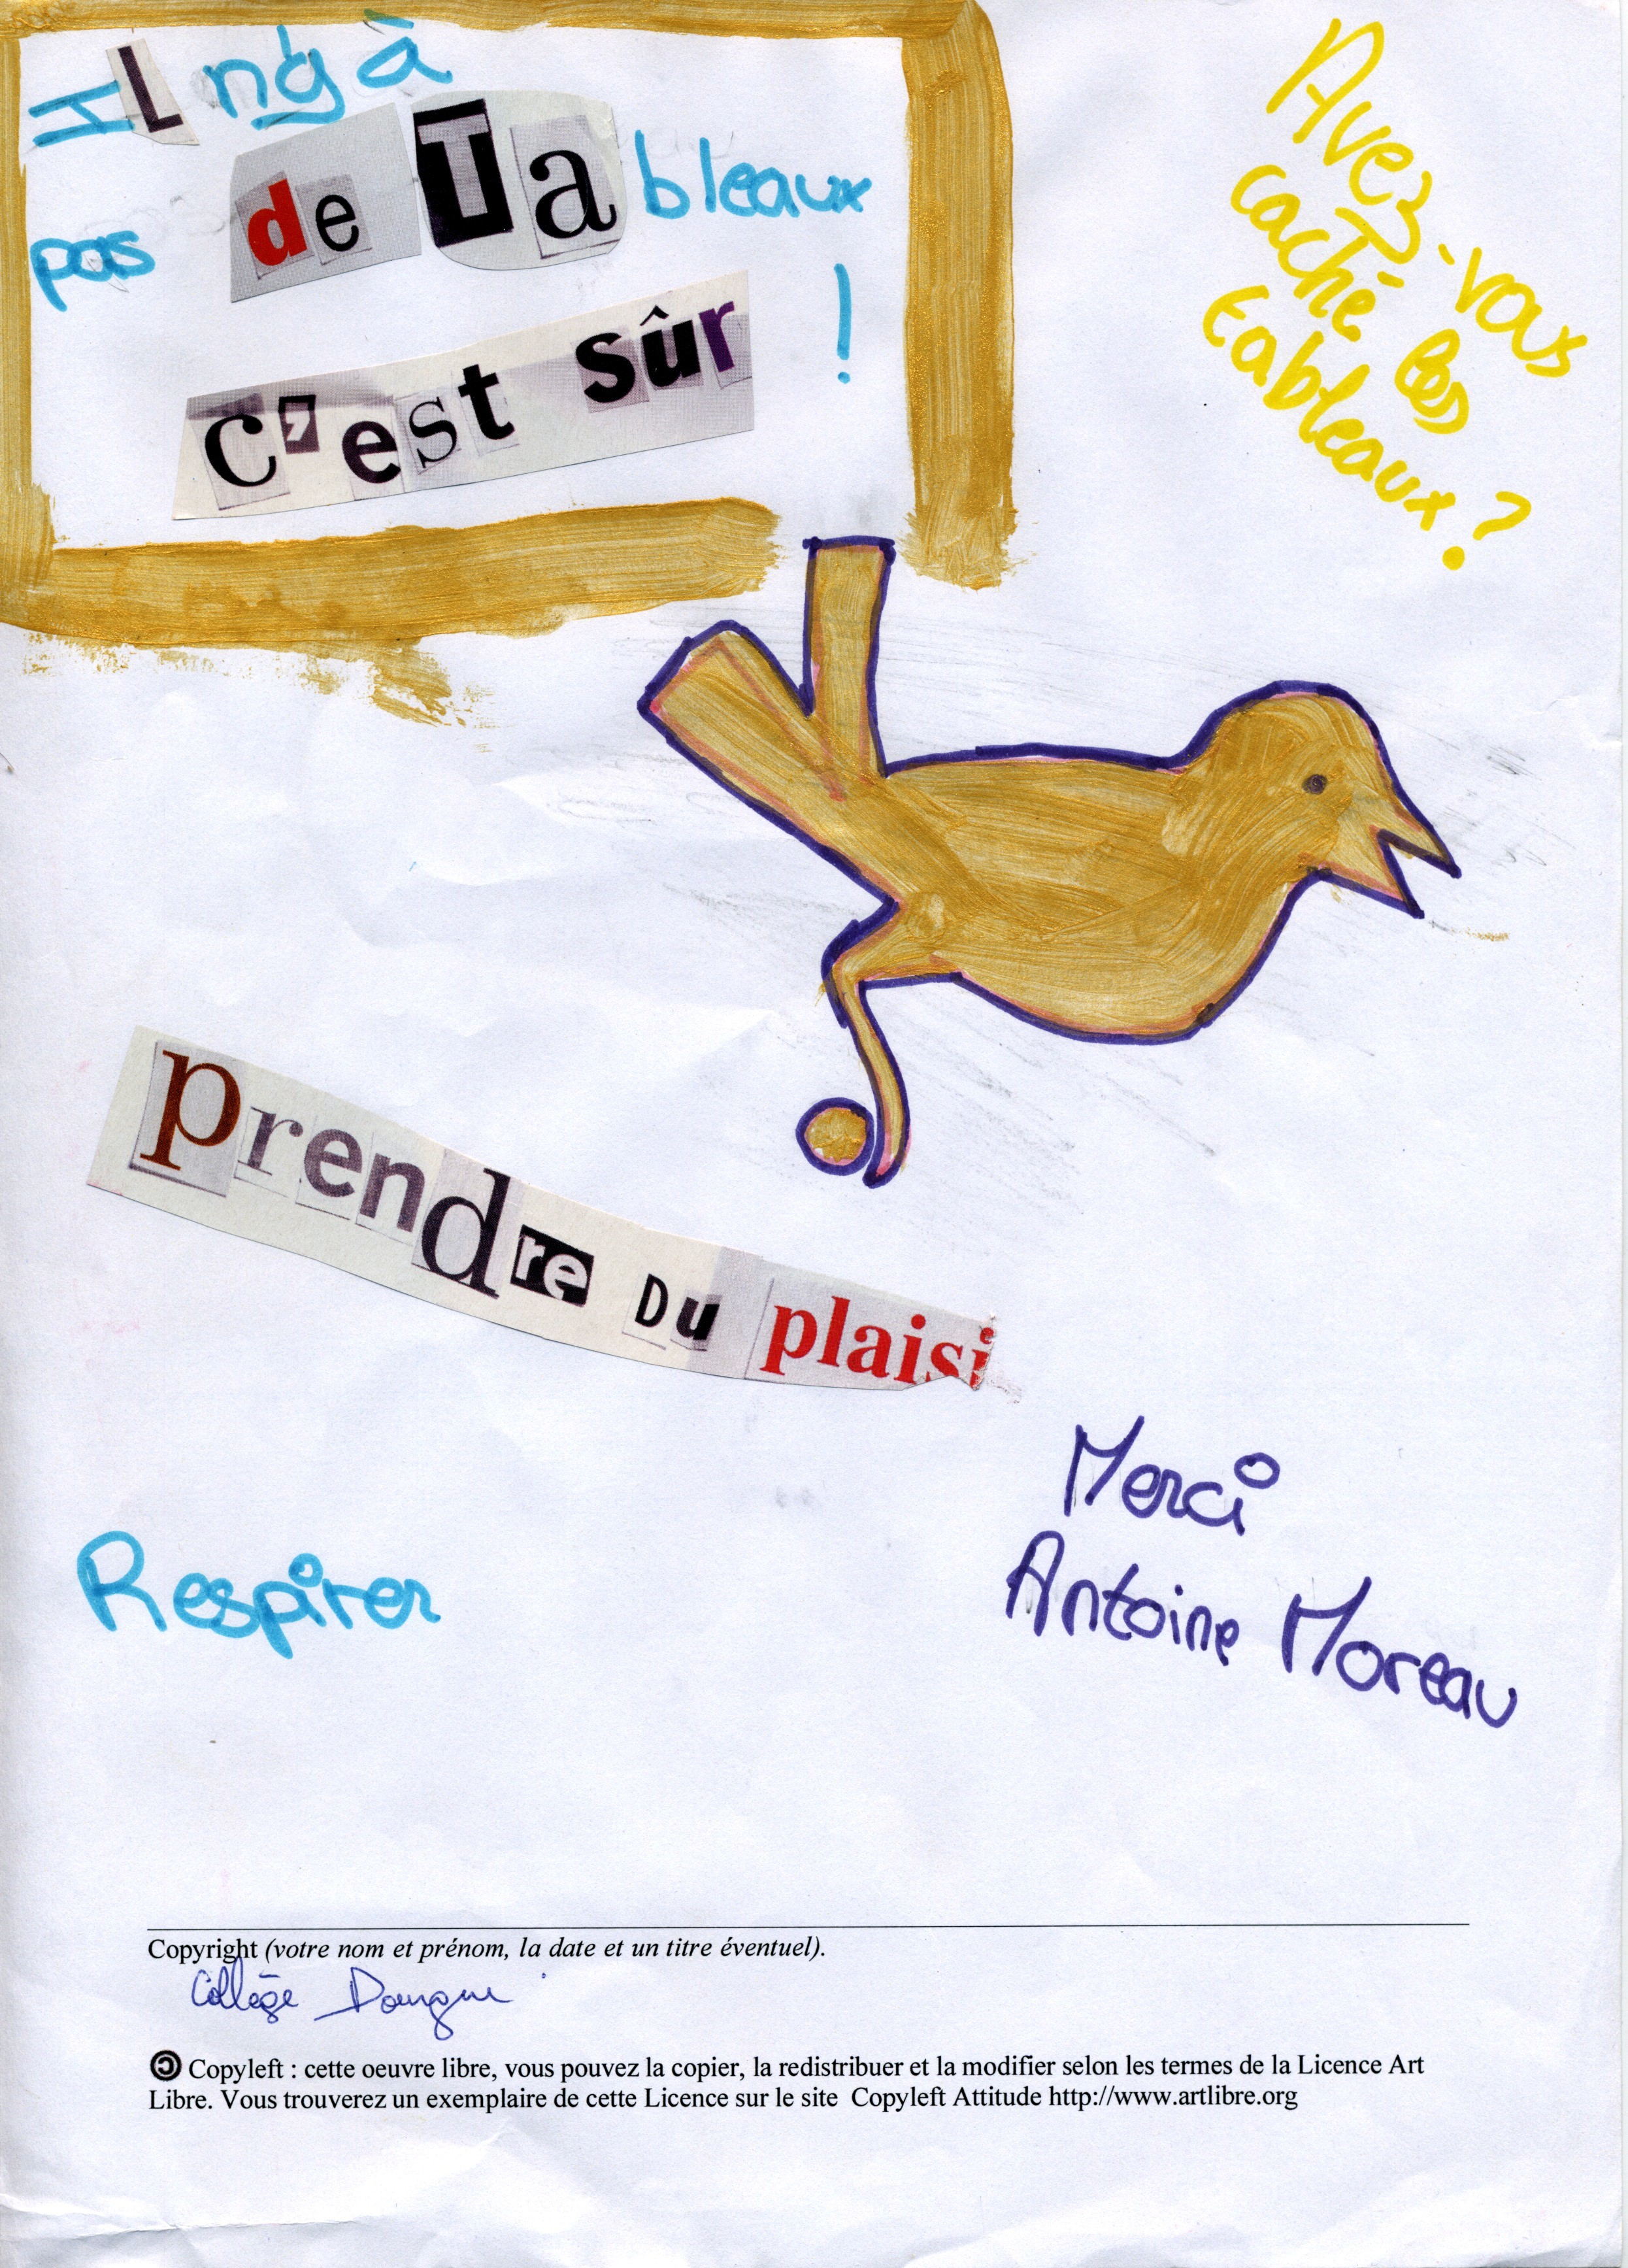 IL n'y à
pas de Tableaux
C'est sûr !
Avez-vous
caché les
tableaux ?
prendre Du plaisi
Respirer
Merci
Antoine Moreau
Copyright (votre nom et prénom, la date et un titre éventuel).
Collège
Copyleft : cette oeuvre libre, vous pouvez la copier, la redistribuer et la modifier selon les termes de la Licence Art
Libre. Vous trouverez un exemplaire de cette Licence sur le site Copyleft Attitude http://www.artlibre.org